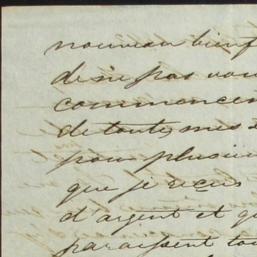 nouveau bienf
de ne pas vou
commencem
de toutes mes
pour plusieu
que je reçus
d'argent et qu
paraissent tou